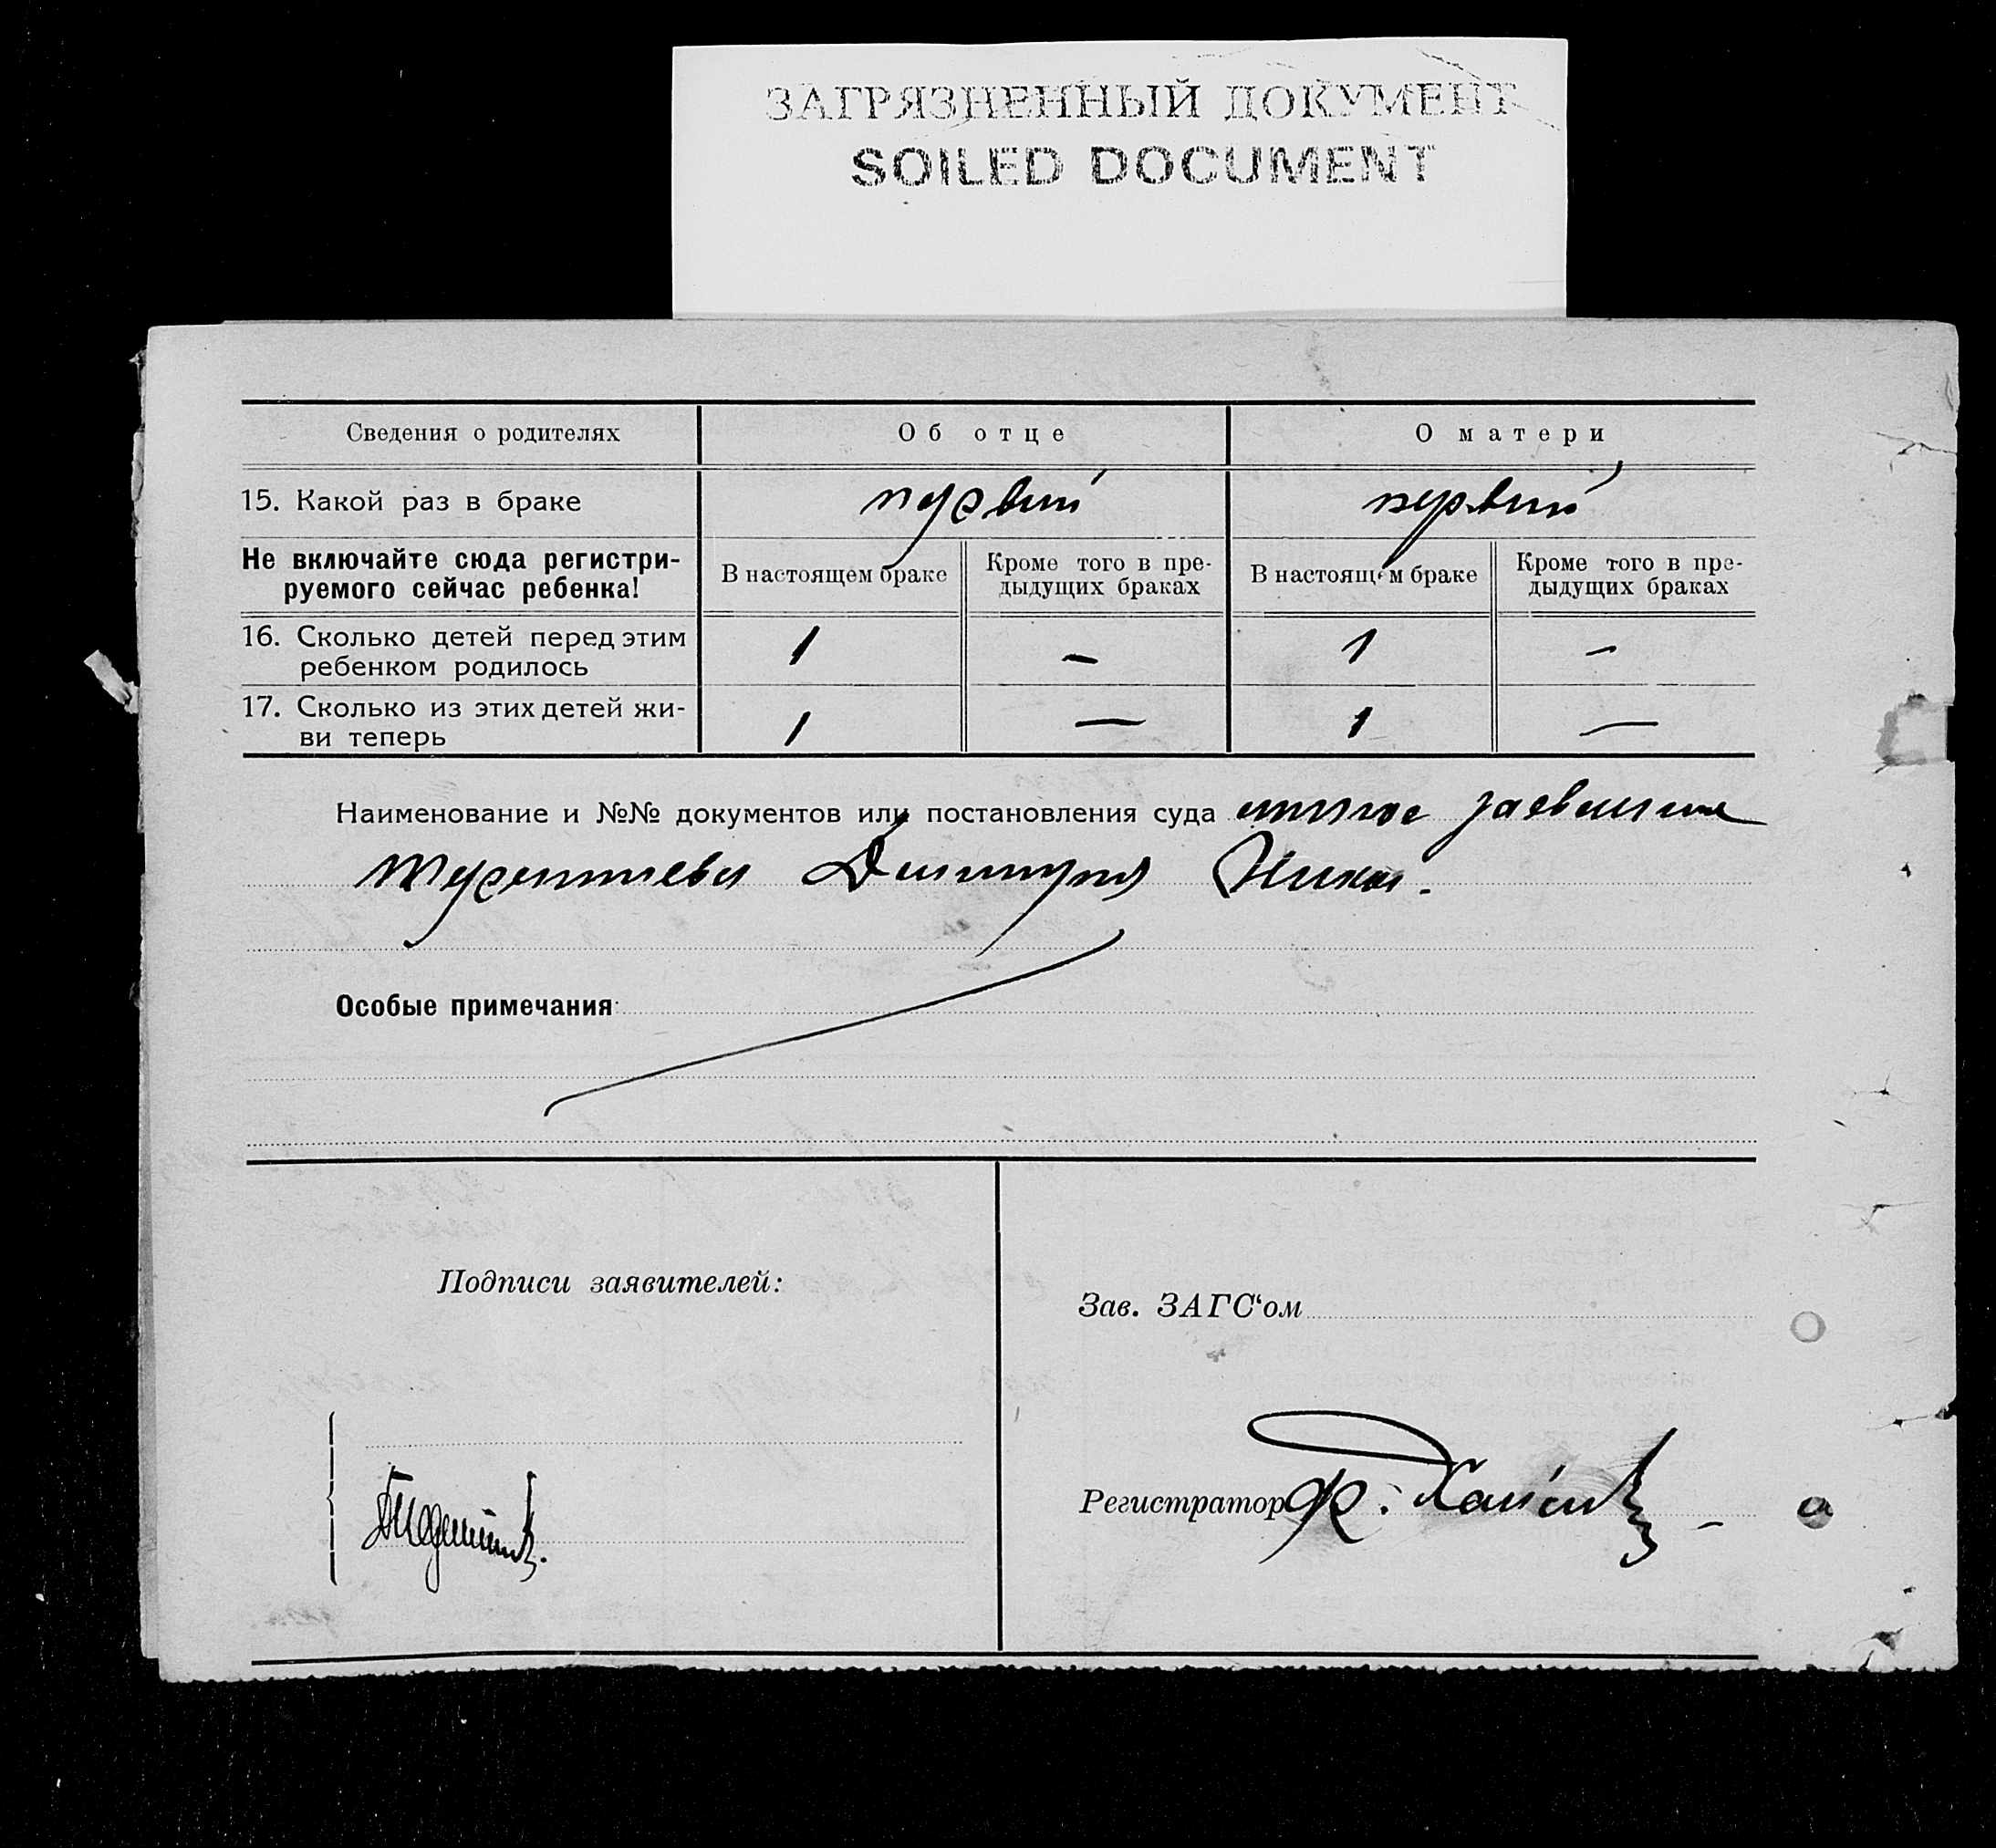 ЗАГРЯЗНЕННЫЙ ДОКУМЕНТ
SOILED DOCUMENT
Сведения о родителях Об отце О матери
15. Какой раз в браке первый первый
Не включайте сюда регистри-
руемого сейчас ребенка!
В настоящем браке
Кроме того в пре-
дыдущих браках
В настоящем браке
Кроме того в пре-
дыдущих браках
16. Сколько детей перед этим
ребенком родилось 1 – 1 –
17. Сколько из этих детей жи-
ви теперь 1 — 1 —
Наименование и №№ документов или постановления суда личное заявление
Терентьева Дмитрия Никол.
Особые примечания
Подписи заявителей:
Зав. ЗАГС‘ом
Регистратор